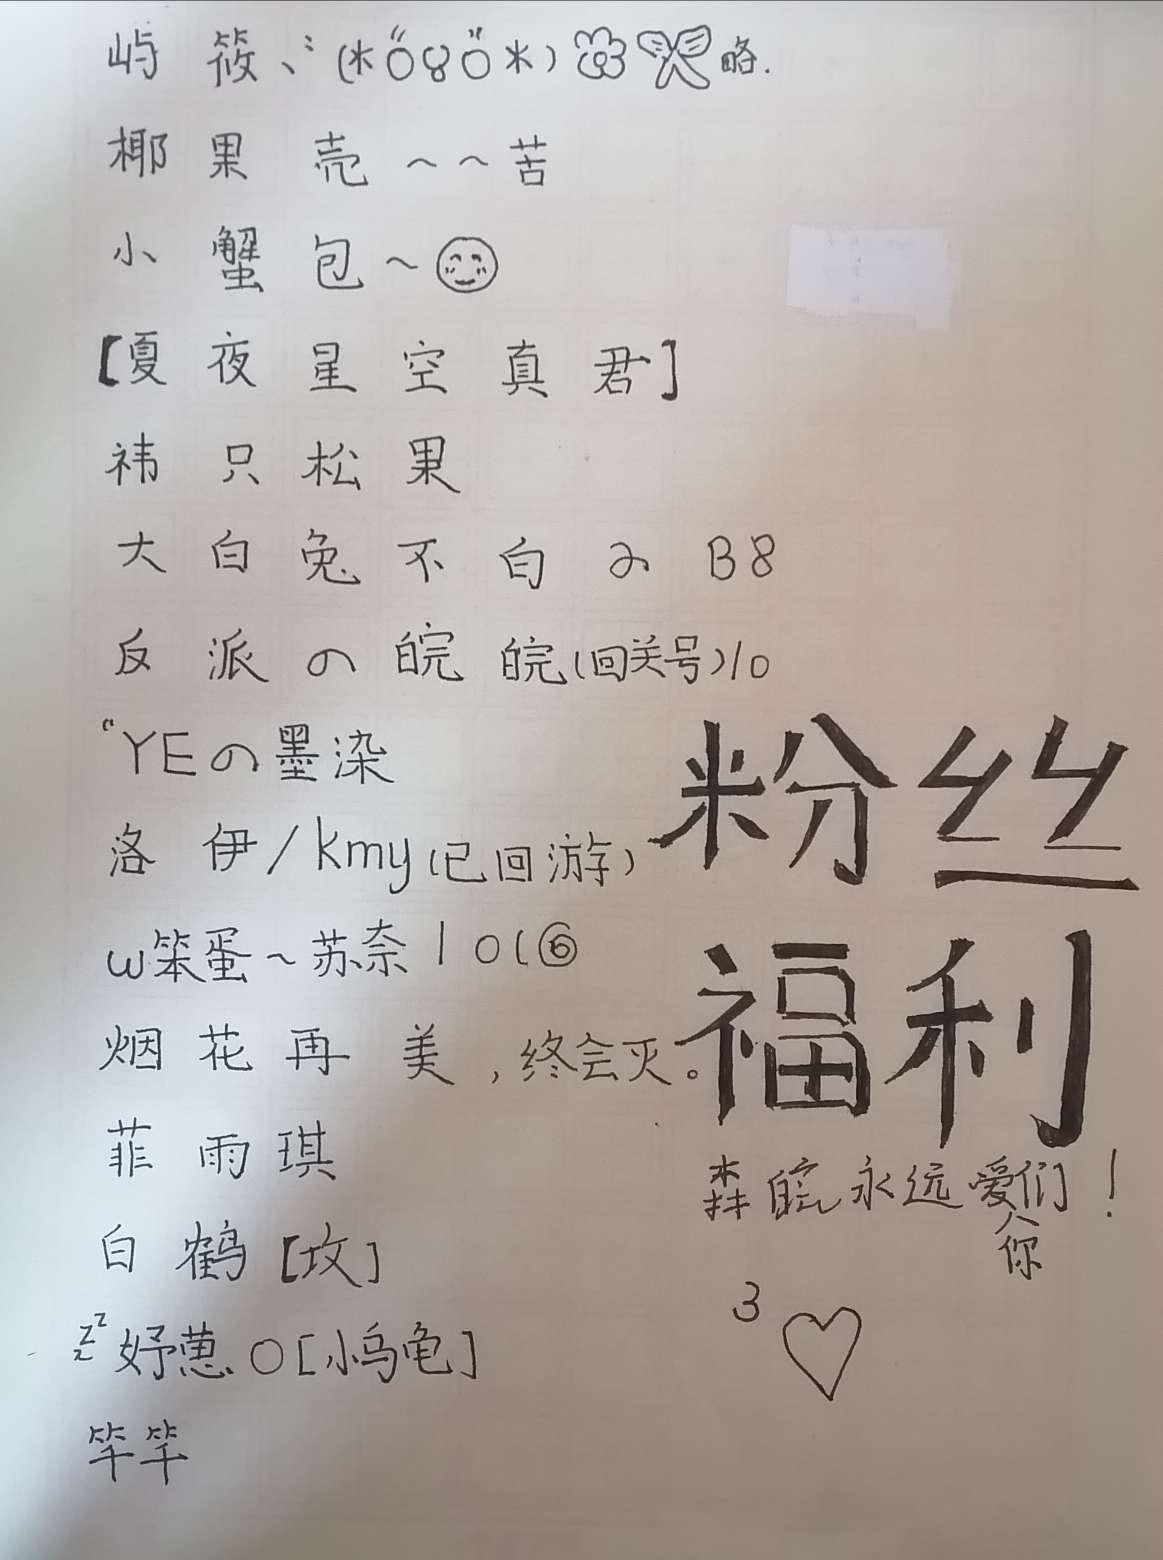 屿筱、ˇ(*ŐȣŐ*) 略.
椰果壳~~苦
小蟹包~
[夏夜星空真君]
祎只松果
大白兔不白 B8
反派の皖皖(回关号)10
“YEの墨染
洛伊/kmy(已回游)
w笨蛋~苏奈 101⑥
烟花再美,终会灭。
菲雨琪
白鹤[坟]
zzz妤蒠0[小乌龟]
竿竿
粉丝
福利
森皖永远爱你们!
3